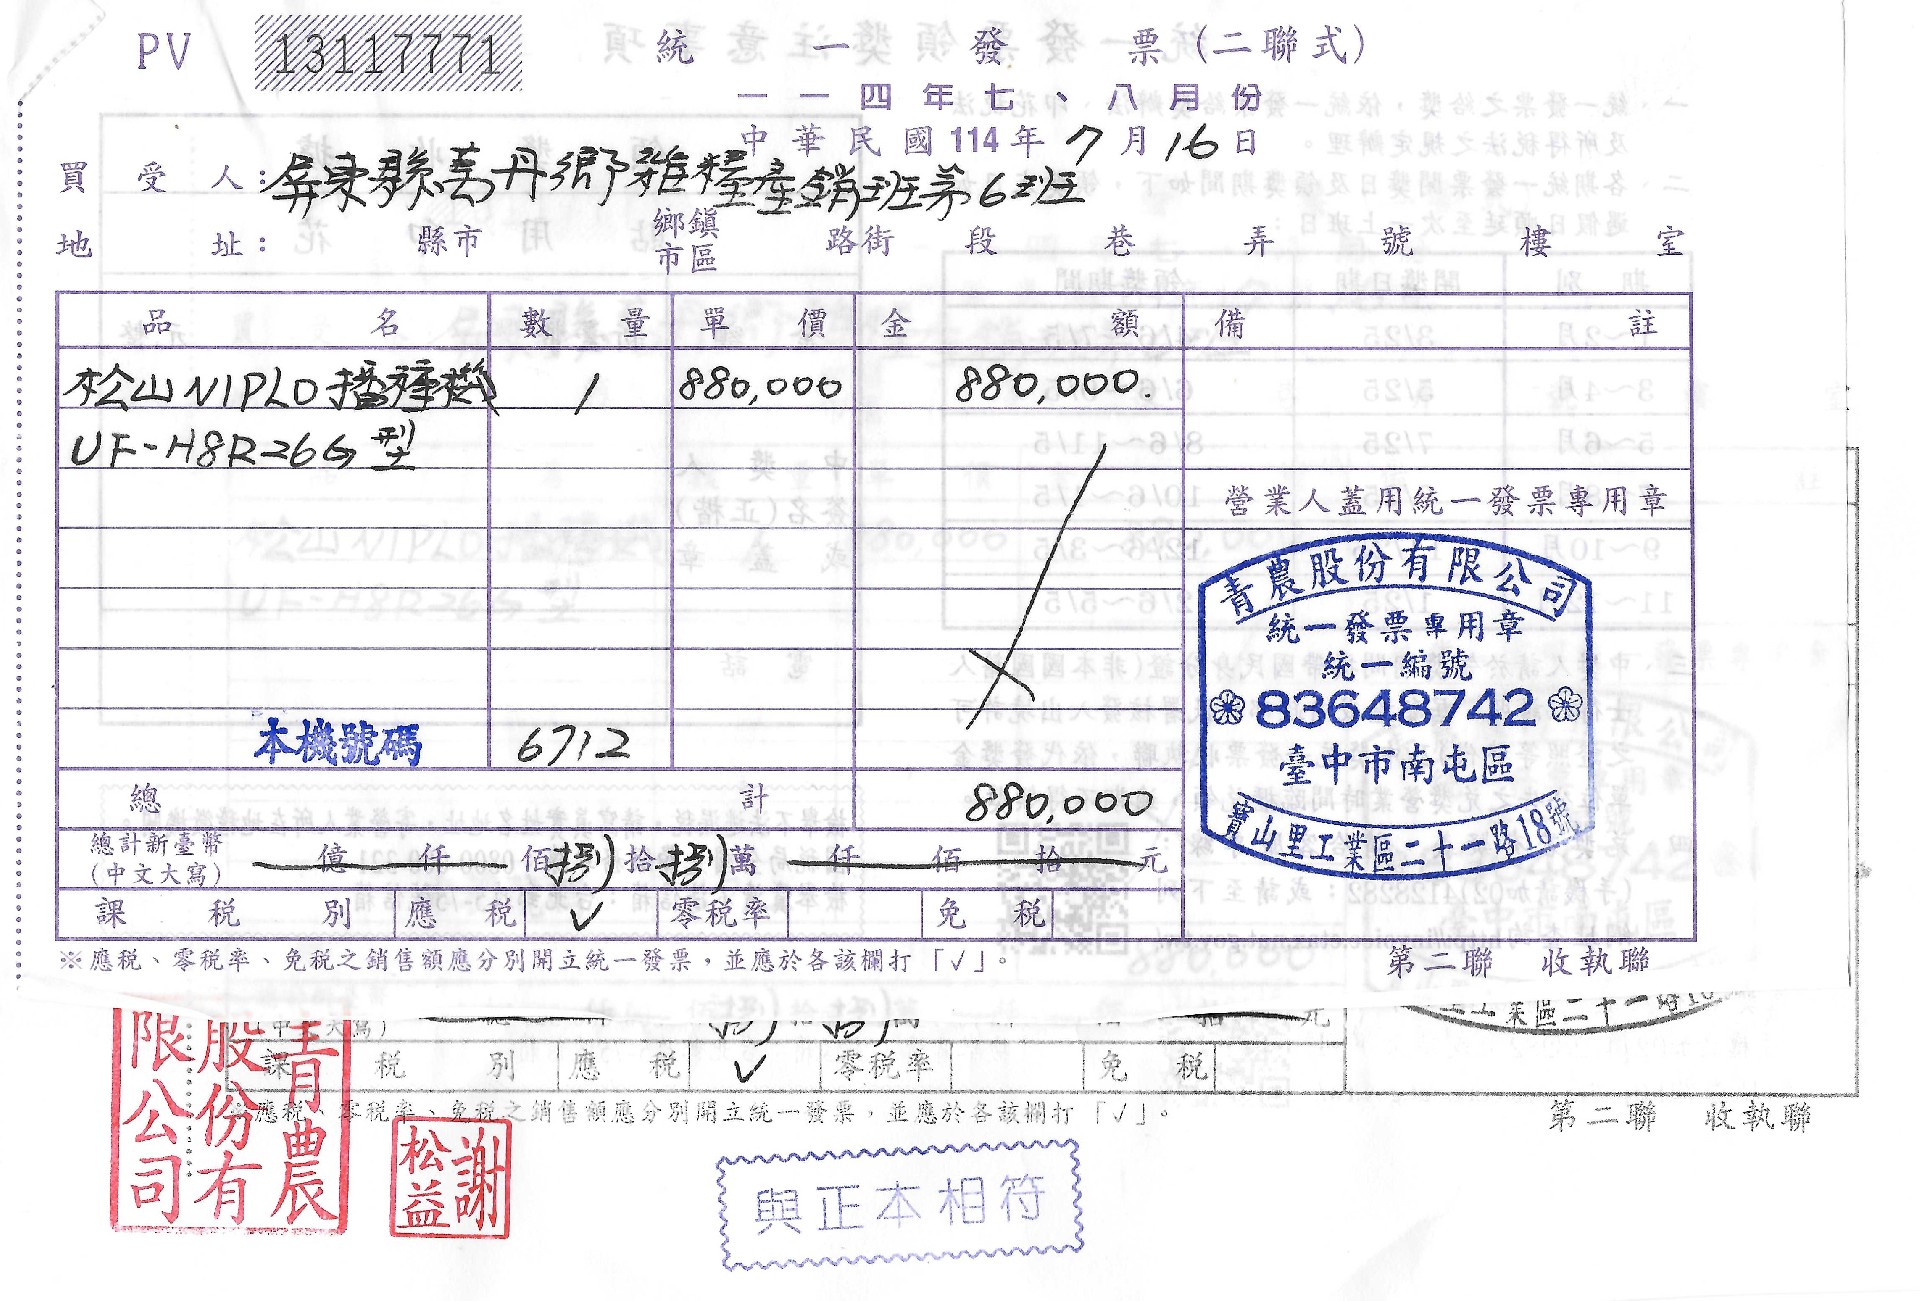 PV 13117771 統一發票(二聯式)
一一四年七、八月份
中華民國114年7月16日
買受人:屏東縣萬丹鄉雜糧產銷班第6班
地址: 縣市 鄉鎮市區 路街 段 巷 弄 號 樓 室
品名 數量 單價 金額 備註
松山NIPLO播種機 1 880,000 880,000.
UF-H8R26G型
營業人蓋用統一發票專用章
青農股份有限公司
統一發票專用章
統一編號
83648742
臺中市南屯區
寶山里工業區二十一路18號
本機號碼 6712
總計 880,000
總計新臺幣
(中文大寫) 億 仟 佰 捌 拾 捌 萬 仟 佰 拾 元
課稅別 應稅 ✓ 零稅率 免稅
※應稅、零稅率、免稅之銷售額應分別開立統一發票,並應於各該欄打「✓」。
第二聯 收執聯
業區二十一路18
捌 拾 捌 萬 拾 元
課稅別 應稅 ✓ 零稅率 免稅
應稅、零稅率、免稅之銷售額應分別開立統一發票,並應於各該欄打「✓」。
第二聯 收執聯
青農股份有限公司
謝松益
與正本相符